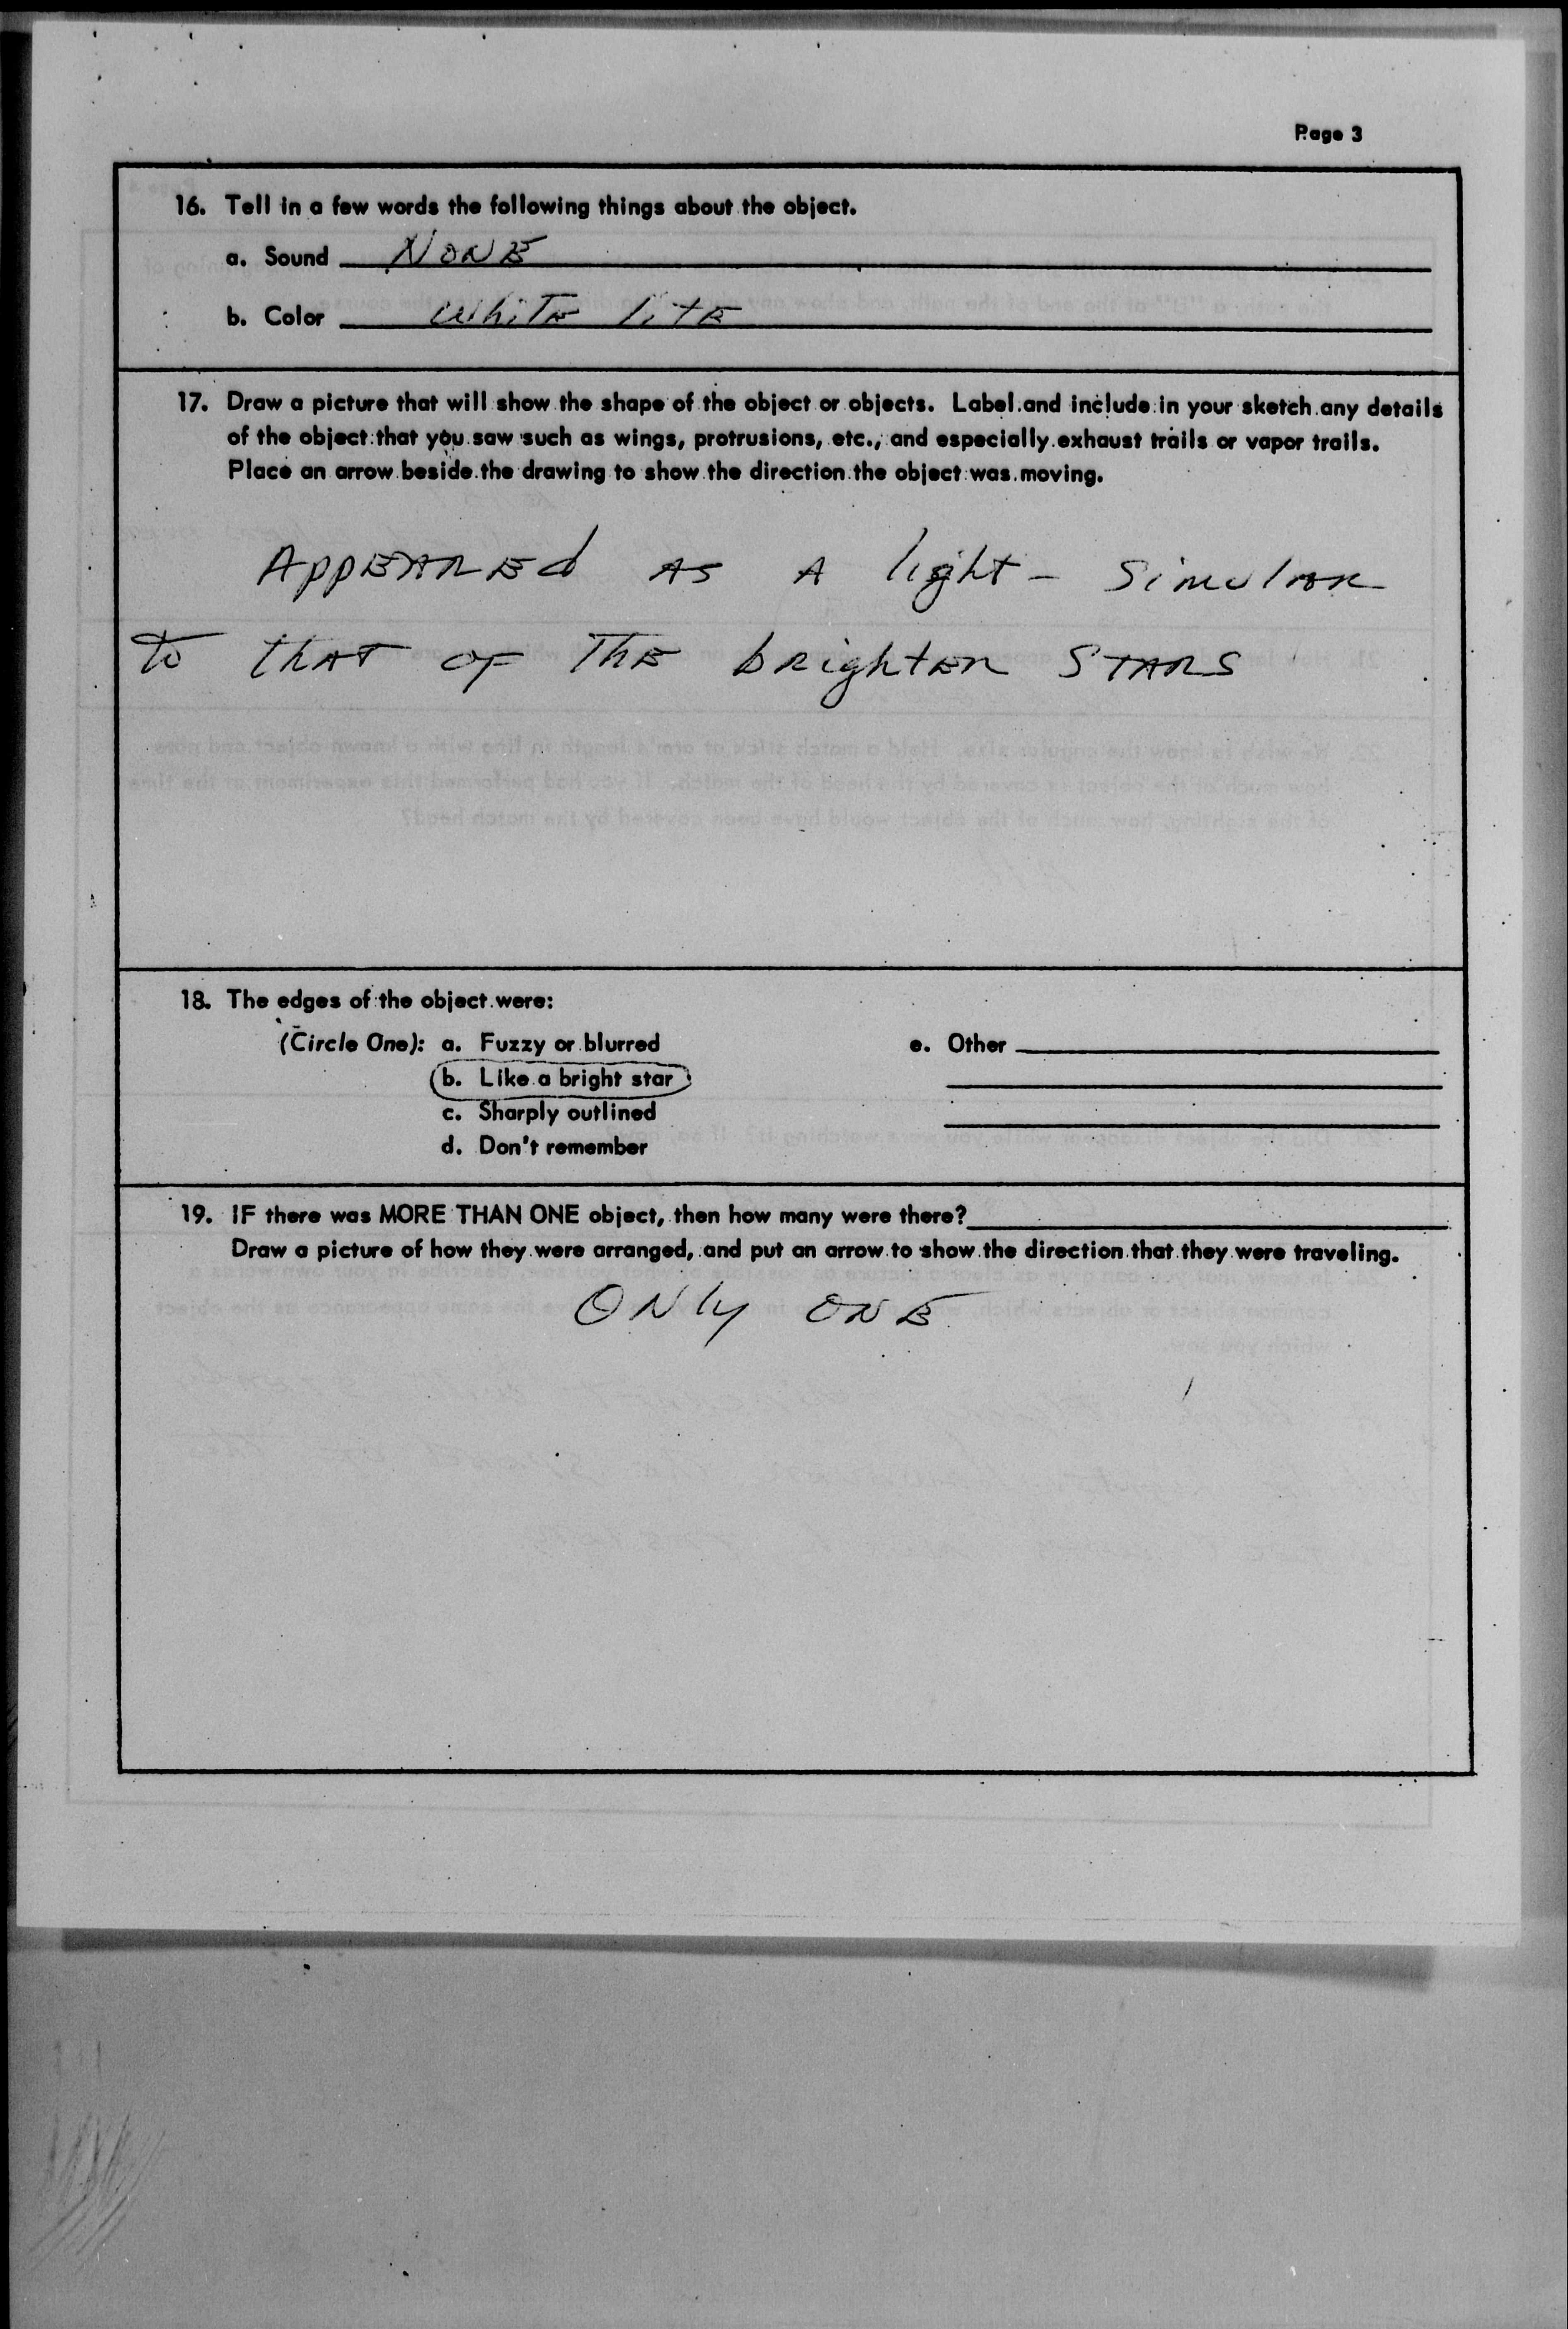 Page 3
16. Tell in a few words the following things about the object.
a. Sound NONE
b. Color White lite
17. Draw a picture that will show the shape of the object or objects. Label and include in your sketch any details
of the object that you saw such as wings, protrusions, etc., and especially exhaust trails or vapor trails.
Place an arrow beside the drawing to show the direction the object was moving.
APPEARED AS A light - Simular
to that of The brighter STARS
18. The edges of the object were:
(Circle One): a. Fuzzy or blurred e. Other
b. Like a bright star
c. Sharply outlined
d. Don't remember
19. IF there was MORE THAN ONE object, then how many were there?
Draw a picture of how they were arranged, and put an arrow to show the direction that they were traveling.
ONly ONE